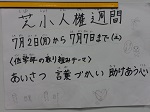 芝小人権週間
7月2日(月)から7月7日まで(土)
(低学年の取り組みテーマ)
あいさつ 言葉づかい 助けあう心